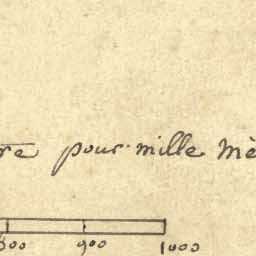 re pour mille Mè
800 900 1000